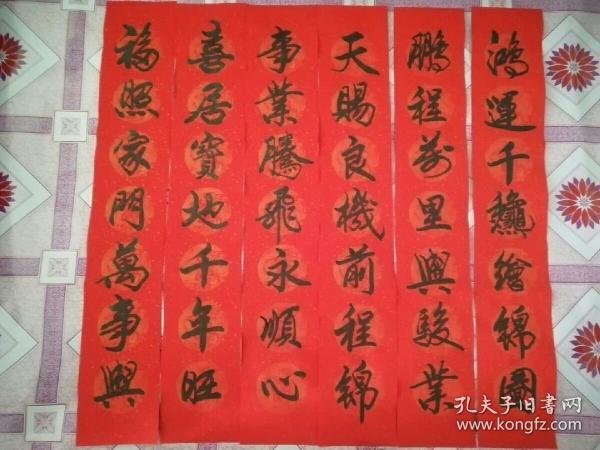 鴻運千龝繪錦圖
鵬程萬里興駿業
天賜良機前程錦
事業騰飛永順心
喜居寶地千年旺
福照家門萬事興
孔夫子旧書网
www.kongfz.com